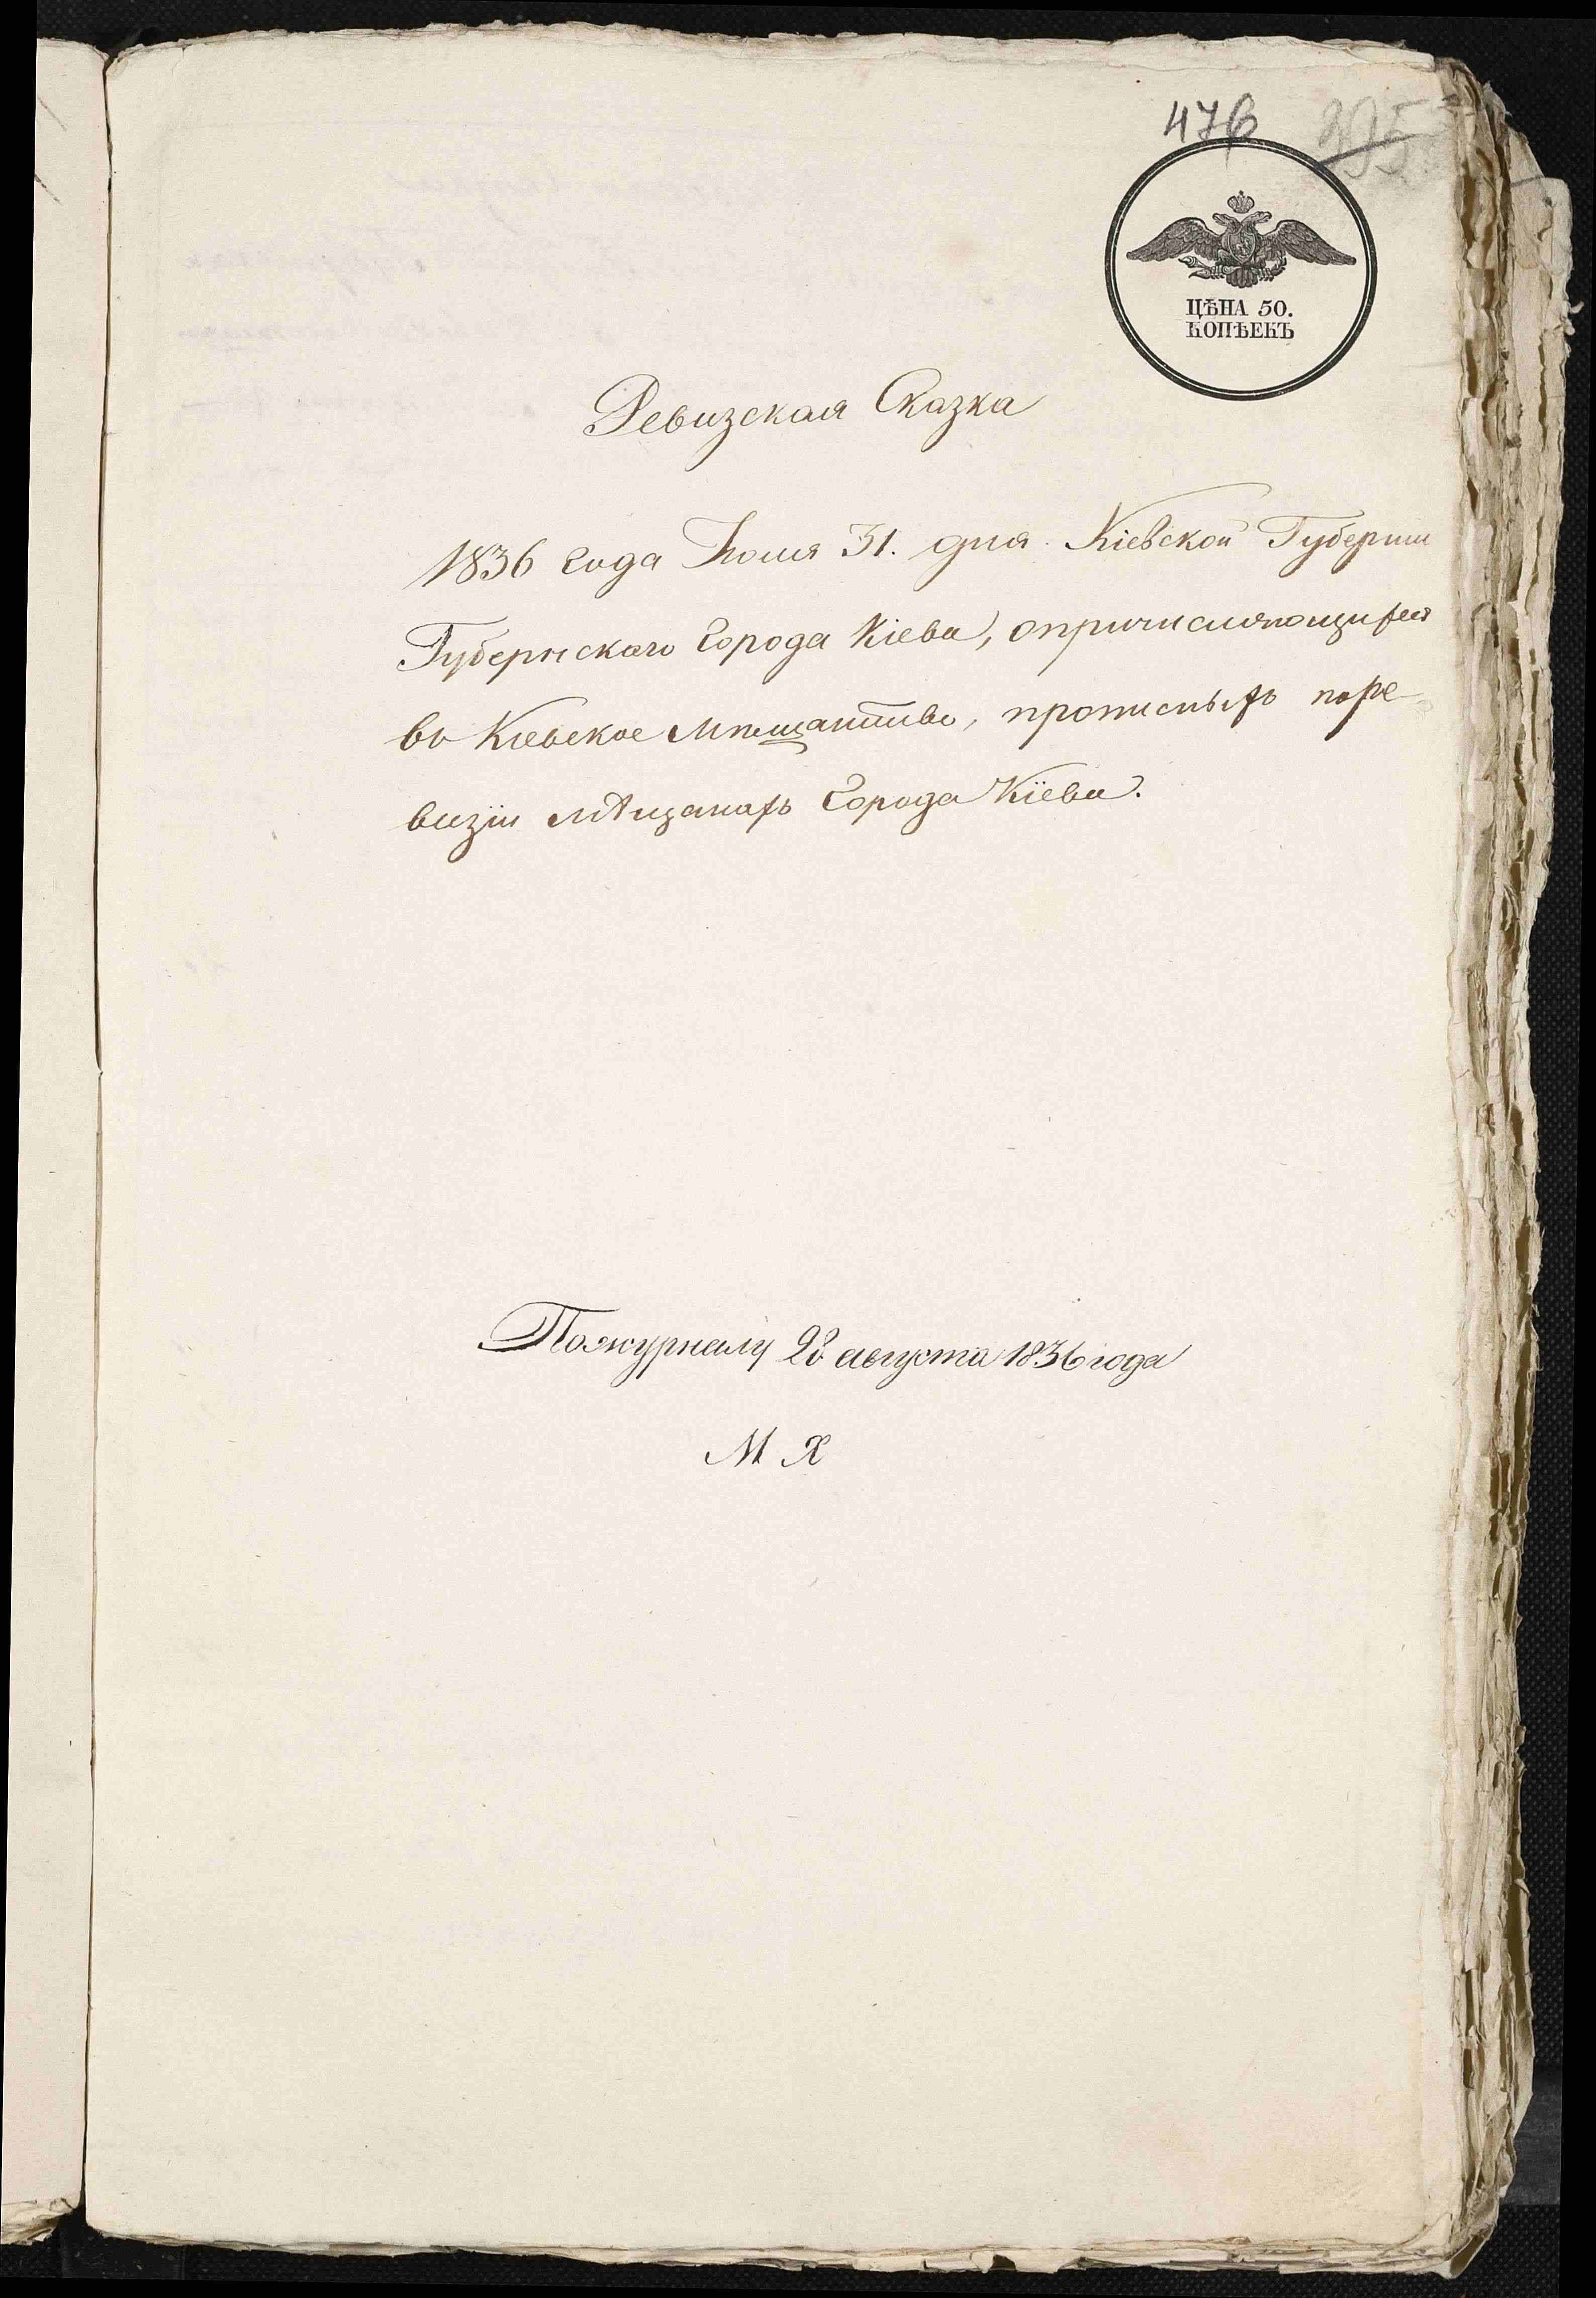 476
395
ЦѢНА 50.
КОПѢЕКЪ
Ревизская Сказка
1836 года Іюля 31. дня Кіевской Губерніи
Губернскаго Города Кіева, опричисляющихся
въ Кіевское Мѣщанство, прописныхъ поре-
визіи мѣщанахъ Города Кіева.
Пожурналу 28 августа 1836 года
М Х